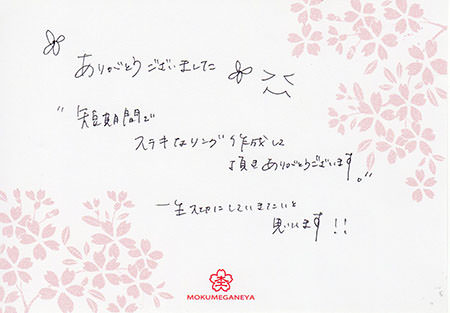 ありがとうございました
"短期間で
ステキなリング作成して
頂きありがとうございます。"
一生大切にしていきたいと
思います!!
MOKUMEGANEYA